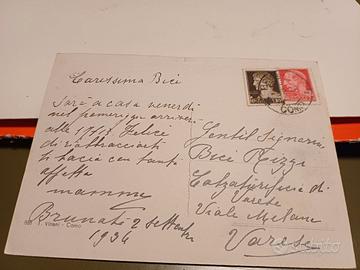 Carissima Bici
Sarò a casa venerdì
nel pomeriggio arriverò
alle 17 1/2 Felice
di riabbracciarti
ti bacio con tanto
affetto
mamma
Brunate 2 settembre
1934
Vivani - Como
Gentil Signorina
Bici Rizzi
Calzaturificio di
Varese
Viale Milano
Varese
COMO
Subito.it